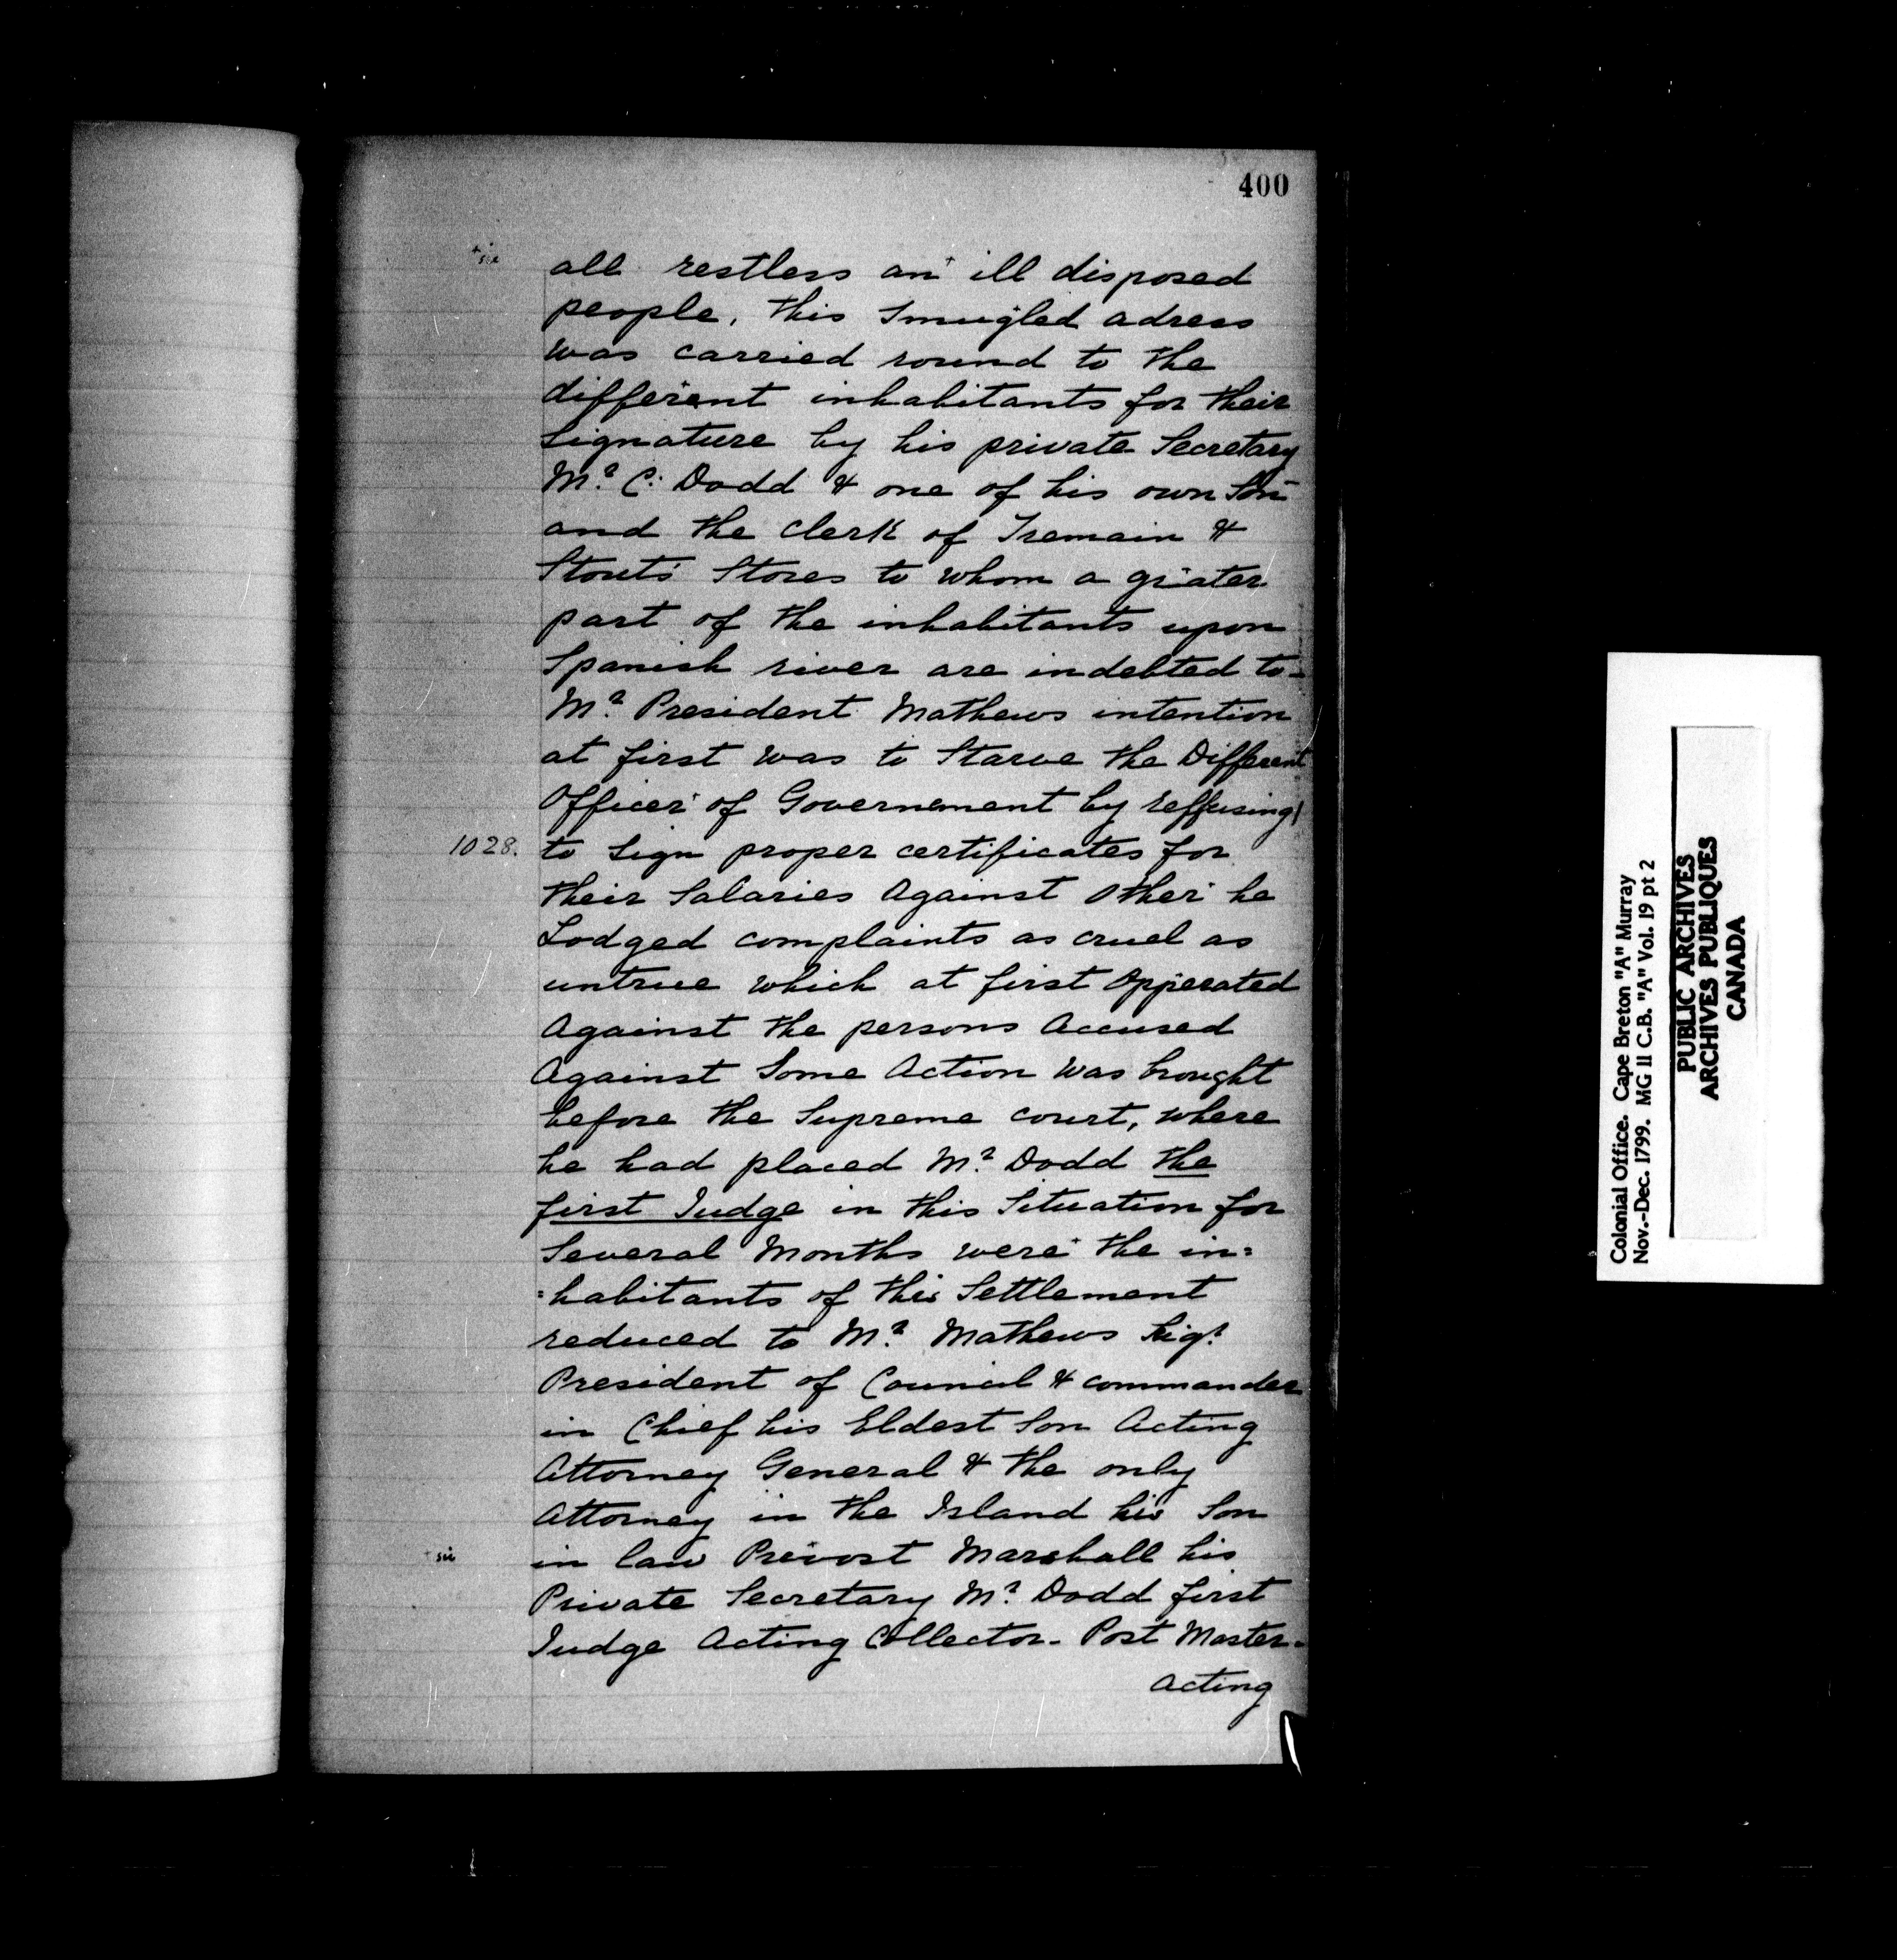 400
+ sic
all restless an+ ill disposed
people, this Smugled adress
was carried round to the
different inhabitants for their
Signature by his private Secretary
Mr. C. Dodd & one of his own Son
and the Clerk of Tremain &
Stouts Stores to whom a grater
part of the inhabitants upon
Spanish river are indebted to -
Mr. President Mathews intention
at first was to Starve the Different
Officer of Governement by reffusing
1028.
to Sign proper certificates for
their Salaries Against Other he
Lodged complaints as cruel as
untrue which at first Opperated
Against the persons Accused
Against Some Action was brought
before the Supreme court, where
he had placed Mr. Dodd the
first Judge in this Situation for
Several Months were the in=
=habitants of this Settlement
reduced to Mr. Mathews
President of Council & commander
in Chief his Eldest Son Acting
Attorney General & the only
Attorney in the Island his Son
+ sic
in law Prevost Marshall his
Private Secretary Mr. Dodd first
Judge Acting Collector - Post Master -
Acting
Colonial Office. Cape Breton "A" Murray
Nov.-Dec. 1799. MG 11 C.B. "A" Vol. 19 pt 2
PUBLIC ARCHIVES
ARCHIVES PUBLIQUES
CANADA